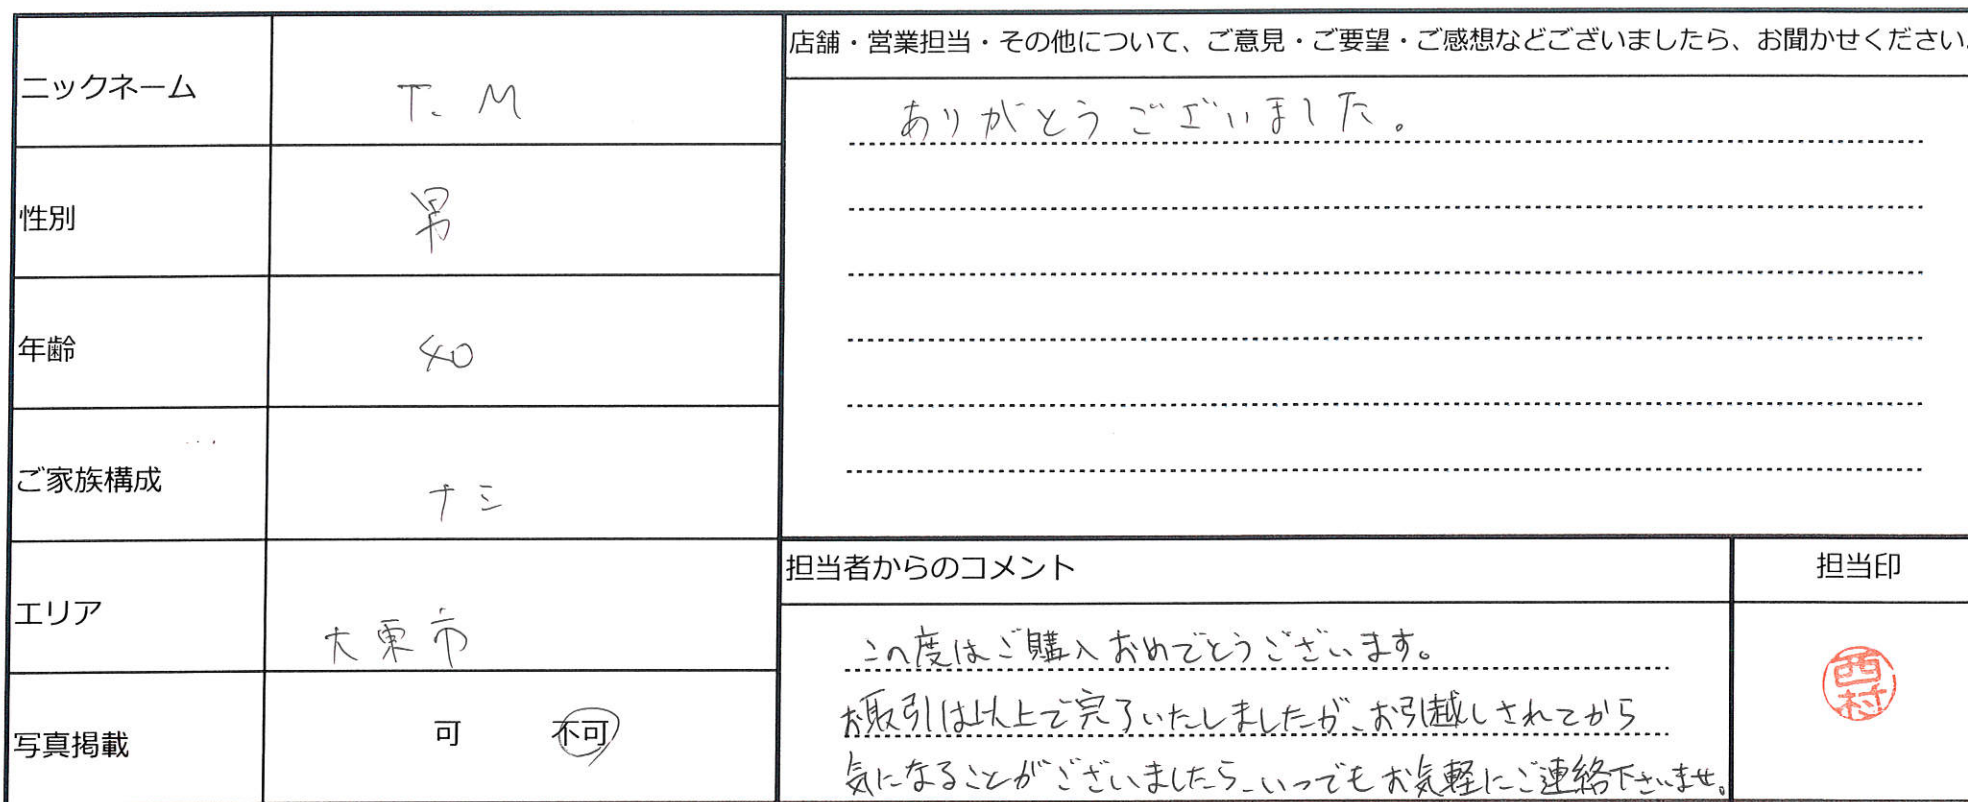 ニックネーム
T. M
性別
男
年齢
40
ご家族構成
ナシ
エリア
大東市
写真掲載
可 不可
店舗・営業担当・その他について、ご意見・ご要望・ご感想などございましたら、お聞かせください。
ありがとうございました。
担当者からのコメント
この度はご購入おめでとうございます。
お取引は以上で完了いたしましたが、お引越しされてから
気になることがございましたら、いつでもお気軽にご連絡下さいませ。
担当印
西村